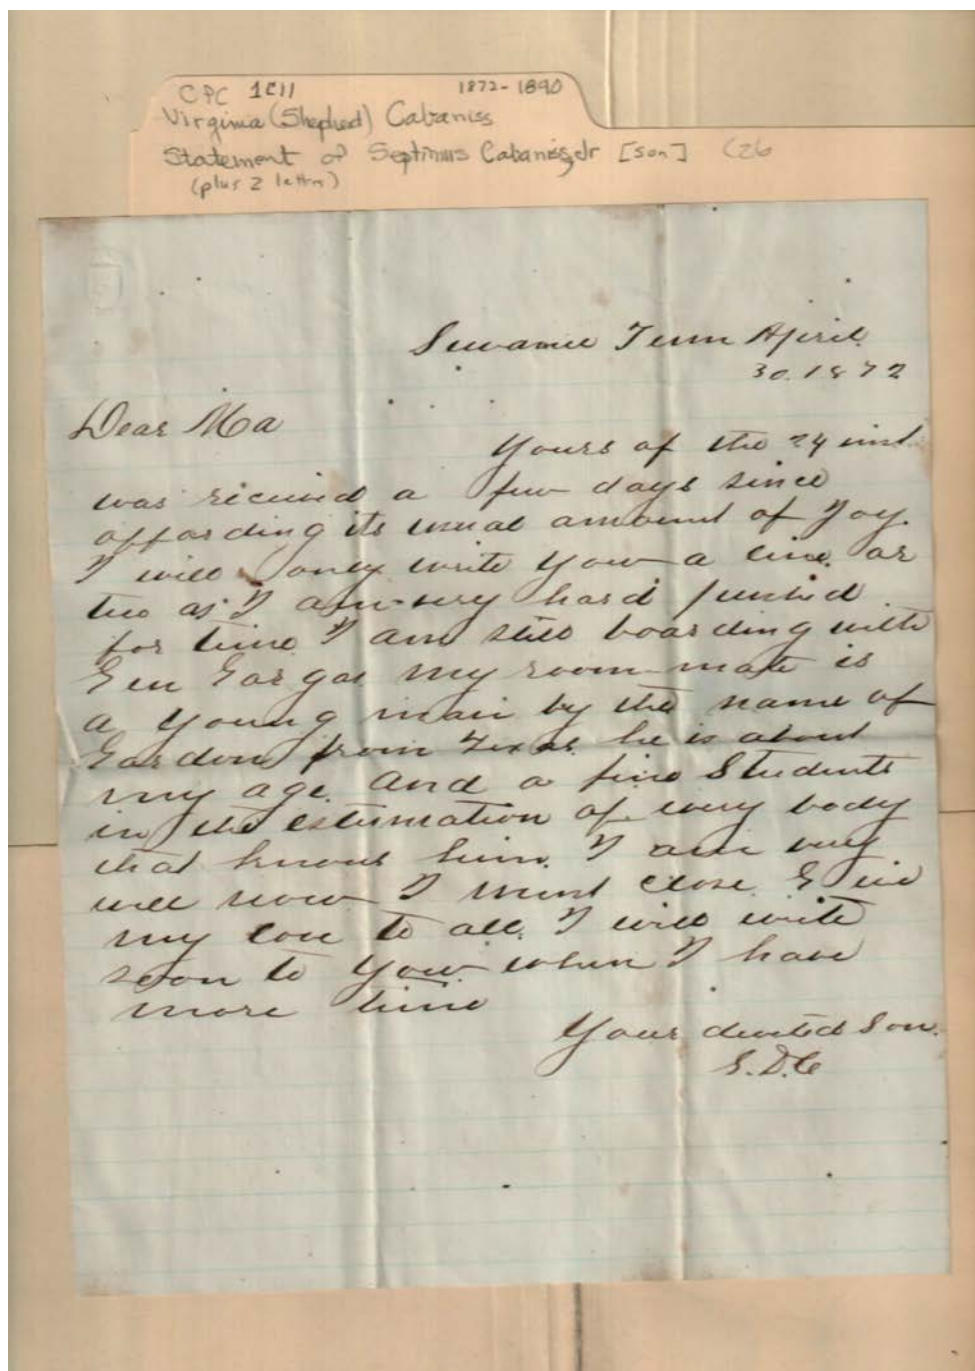 CPC 1C11 1872-1890
Virginia (Shepherd) Cabaniss
Statement of Septimus Cabaniss, Jr [son] (26
(plus 2 letters)
Sewanee Tenn April.
30. 1872
Dear Ma
Yours of the 24 inst.
was received a few days since
affording its usual amount of Joy.
I will only write you a line or
two as I am very hard pushed
for time. I am still boarding with
Gen Gorgas my room-mate is
a young man by the name of
Gordon from Texas. he is about
my age. And a fine Students
in the estimation of every body
that knows him. I am very
well now I must close. Give
my love to all. I will write
soon to you when I have
more time
Your devoted Son.
S.D.C